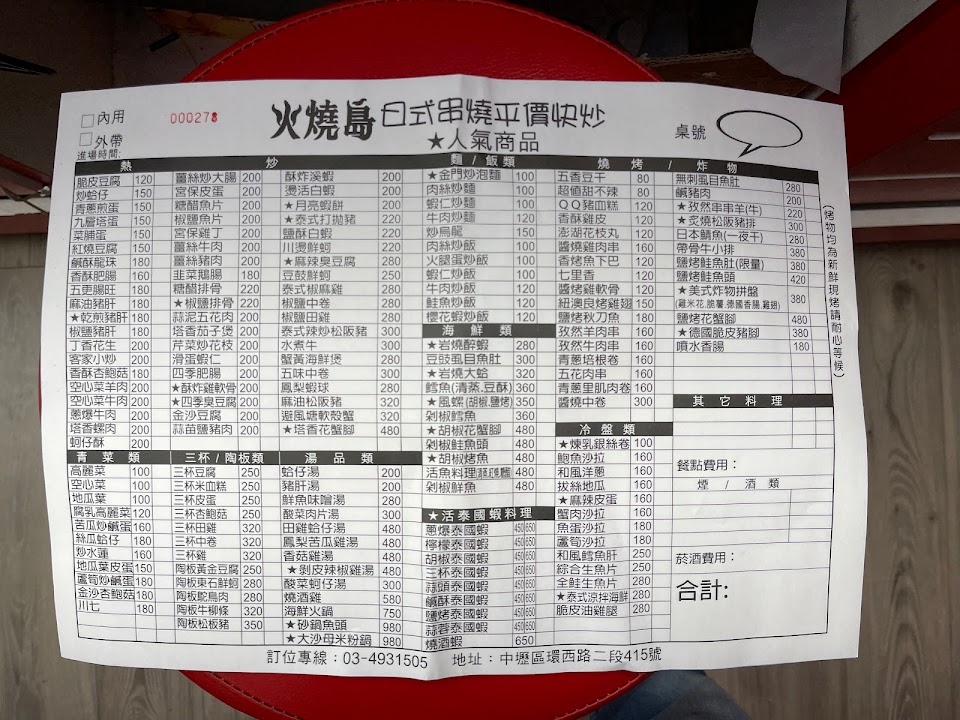 內用
000278
火燒島 日式串燒平價快炒
桌號
外帶
★人氣商品
進場時間:
熱 炒
脆皮豆腐 120
炒蛤仔 150
青蔥煎蛋 150
九層塔蛋 150
菜脯蛋 150
紅燒豆腐 150
鹹酥龍珠 180
香酥肥腸 160
五更腸旺 180
麻油豬肝 180
★乾煎豬肝 180
椒鹽豬肝 180
丁香花生 180
客家小炒 200
香酥杏鮑菇 180
空心菜羊肉 200
空心菜牛肉 200
蔥爆牛肉 200
塔香螺肉 200
蚵仔酥 200
薑絲炒大腸 200
宮保皮蛋 200
糖醋魚片 200
椒鹽魚片 200
宮保雞丁 200
薑絲牛肉 200
薑絲豬肉 200
韭菜鵝腸 180
糖醋排骨 220
★椒鹽排骨 220
蒜泥五花肉 200
塔香茄子煲 200
芹菜炒花枝 200
滑蛋蝦仁 200
四季肥腸 200
★酥炸雞軟骨 200
★四季臭豆腐 200
金沙豆腐 200
蒜苗鹽豬肉 200
酥炸溪蝦 200
燙活白蝦 200
★月亮蝦餅 200
★泰式打拋豬 220
鹽酥白蝦 220
川燙鮮蚵 220
★麻辣臭豆腐 280
豆鼓鮮蚵 250
泰式椒麻雞 280
椒鹽中卷 280
椒鹽田雞 280
泰式辣炒松阪豬 300
水煮牛 300
蟹黃海鮮煲 280
五味中卷 300
鳳梨蝦球 280
麻油松阪豬 320
避風塘軟殼蟹 320
★塔香花蟹腳 480
麵 / 飯 類
★金門炒泡麵 100
肉絲炒麵 100
蝦仁炒麵 120
牛肉炒麵 120
炒烏龍 150
肉絲炒飯 100
火腿蛋炒飯 100
蝦仁炒飯 120
牛肉炒飯 120
鮭魚炒飯 120
櫻花蝦炒飯 120
海 鮮 類
★岩燒醉蝦 280
豆豉虱目魚肚 300
★岩燒大蛤 320
鱈魚(清蒸.豆酥) 360
★風螺(胡椒.鹽烤) 350
剁椒鱈魚 360
★胡椒花蟹腳 480
剁椒鮭魚頭 480
★胡椒烤魚 480
活魚料理 480
剁椒鮮魚 480
★活泰國蝦料理
蔥爆泰國蝦 450 650
檸檬泰國蝦 450 650
胡椒泰國蝦 450 650
三杯泰國蝦 450 650
蒜頭泰國蝦 450 650
鹹酥泰國蝦 450 650
鹽烤泰國蝦 450 650
蒜蓉泰國蝦 450 650
燒酒蝦 650
燒 烤 / 炸 物
五香豆干 80
超值甜不辣 80
QQ豬血糕 120
香酥雞皮 120
澎湖花枝丸 120
醬燒雞肉串 160
香烤魚下巴 120
七里香 120
醬烤雞軟骨 120
紐澳良烤雞翅 150
鹽烤秋刀魚 180
孜然羊肉串 160
孜然牛肉串 160
青蔥培根卷 160
五花肉串 160
青蔥里肌肉卷 160
醬燒中卷 300
冷 盤 類
★煉乳銀絲卷 100
鮑魚沙拉 160
和風洋蔥 160
拔絲地瓜 160
★麻辣皮蛋 160
蟹肉沙拉 160
魚蛋沙拉 180
蘆筍沙拉 180
和風鱈魚肝 250
綜合生魚片 250
全鮭生魚片 280
★泰式涼拌海鮮 280
脆皮油雞腿 280
無刺虱目魚肚 280
鹹豬肉 200
★孜然串串羊(牛) 220
★炙燒松阪豬排 300
日本鯖魚(一夜干) 280
帶骨牛小排 380
鹽烤鮭魚肚(限量) 380
鹽烤鮭魚頭 420
★美式炸物拼盤 380
(雞米花.脆薯.德國香腸.雞翅)
鹽烤花蟹腳 480
★德國脆皮豬腳 380
噴水香腸 180
(烤物均為新鮮現烤請耐心等候)
其 它 料 理
餐點費用:
煙 / 酒 類
菸酒費用:
合計:
青 菜 類
高麗菜 100
空心菜 100
地瓜葉 100
腐乳高麗菜 120
苦瓜炒鹹蛋 160
絲瓜蛤仔 180
炒水蓮 160
地瓜葉皮蛋 150
蘆筍炒鹹蛋 180
金沙杏鮑菇 180
川七 180
三杯 / 陶板類
三杯豆腐 250
三杯米血糕 250
三杯皮蛋 250
三杯杏鮑菇 250
三杯田雞 320
三杯中卷 320
三杯雞 320
陶板黃金豆腐 250
陶板東石鮮蚵 280
陶板鴕鳥肉 280
陶板牛柳條 320
陶板松板豬 350
湯 品 類
蛤仔湯 200
豬肝湯 200
鮮魚味噌湯 280
酸菜肉片湯 300
田雞蛤仔湯 480
鳳梨苦瓜雞湯 480
香菇雞湯 480
★剝皮辣椒雞湯 480
酸菜蚵仔湯 300
燒酒雞 580
海鮮火鍋 750
★砂鍋魚頭 980
★大沙母米粉鍋 980
訂位專線:03-4931505 地址:中壢區環西路二段415號